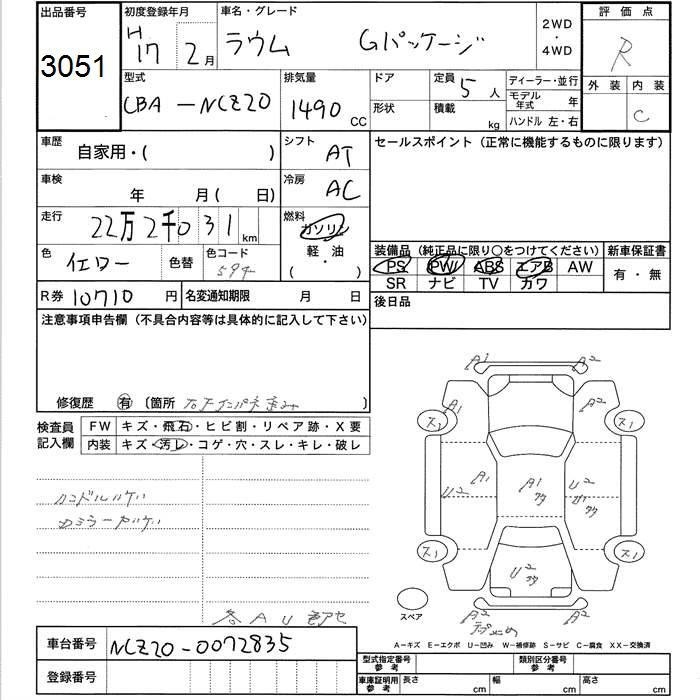 出品番号 初度登録年月 車名・グレード 2WD・4WD 評価点
3051 H17 2月 ラウム Gパッケージ R
型式 排気量 ドア 定員 5人 ディーラー・並行 外装 内装
CBA-NCZ20 1490 CC 形状 積載 kg モデル年式 年 C
ハンドル 左・右
車歴 自家用・( ) シフト AT セールスポイント (正常に機能するものに限ります)
車検 年 月( 日) 冷房 AC
走行 22万2千031km 燃料 ガソリン・軽油 ( )
色 イエロー 色替 色コード 594
装備品 (純正品に限り○をつけてください) 新車保証書
PS PW ABS エアB AW 有・無
SR ナビ TV カワ
R券 10710 円 名変通知期限 月 日 後日品
注意事項申告欄 (不具合内容等は具体的に記入して下さい)
修復歴 有 〔箇所 〕
検査員記入欄 FW キズ・飛石・ヒビ割・リペア跡・X要
内装 キズ・汚レ・コゲ・穴・スレ・キレ・破レ
A1 A2
A1 A2
ス1 ス1
U2 A1 A1 U2
ス1 ス1
U2
スペア
A2 A2
ハンドルハゲ
各AU
A-キズ E-エクボ U-凹み W-補修跡 S-サビ C-腐食 XX-交換済
車台番号 NCZ20-0072835
登録番号
型式指定番号 参考 類別区分番号 参考
車庫証明用 参考 長さ cm 幅 cm 高さ cm